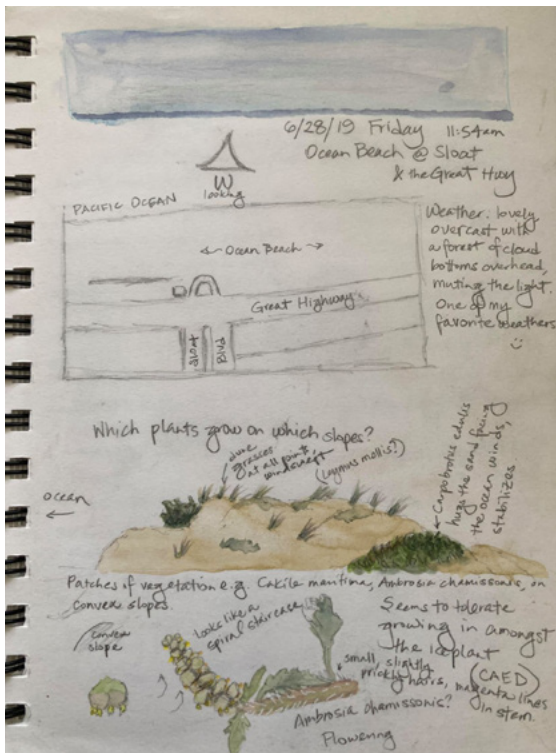 6/28/19 Friday 11:54am
Ocean Beach @ Sloat
& the Great Hwy
W
looking
PACIFIC OCEAN
← Ocean Beach →
Great Highway
Sloat
Blvd
Weather: lovely
overcast with
a forest of cloud
bottoms overhead,
muting the light.
One of my
favorite weathers
Which plants grow on which slopes?
dune
grasses
at all points,
windswept
(Leymus mollis?)
Carpobrotus edulis
hugs the sand facing
the ocean winds,
stabilizes
ocean
←
Patches of vegetation e.g. Cakile maritima, Ambrosia chamissonis, on
convex slopes.
convex
slope
looks like a
spiral staircase
Seems to tolerate
growing in amongst
the iceplant
(CAED)
small, slightly
prickly hairs, magenta lines
in stem.
Ambrosia chamissonis?
Flowering